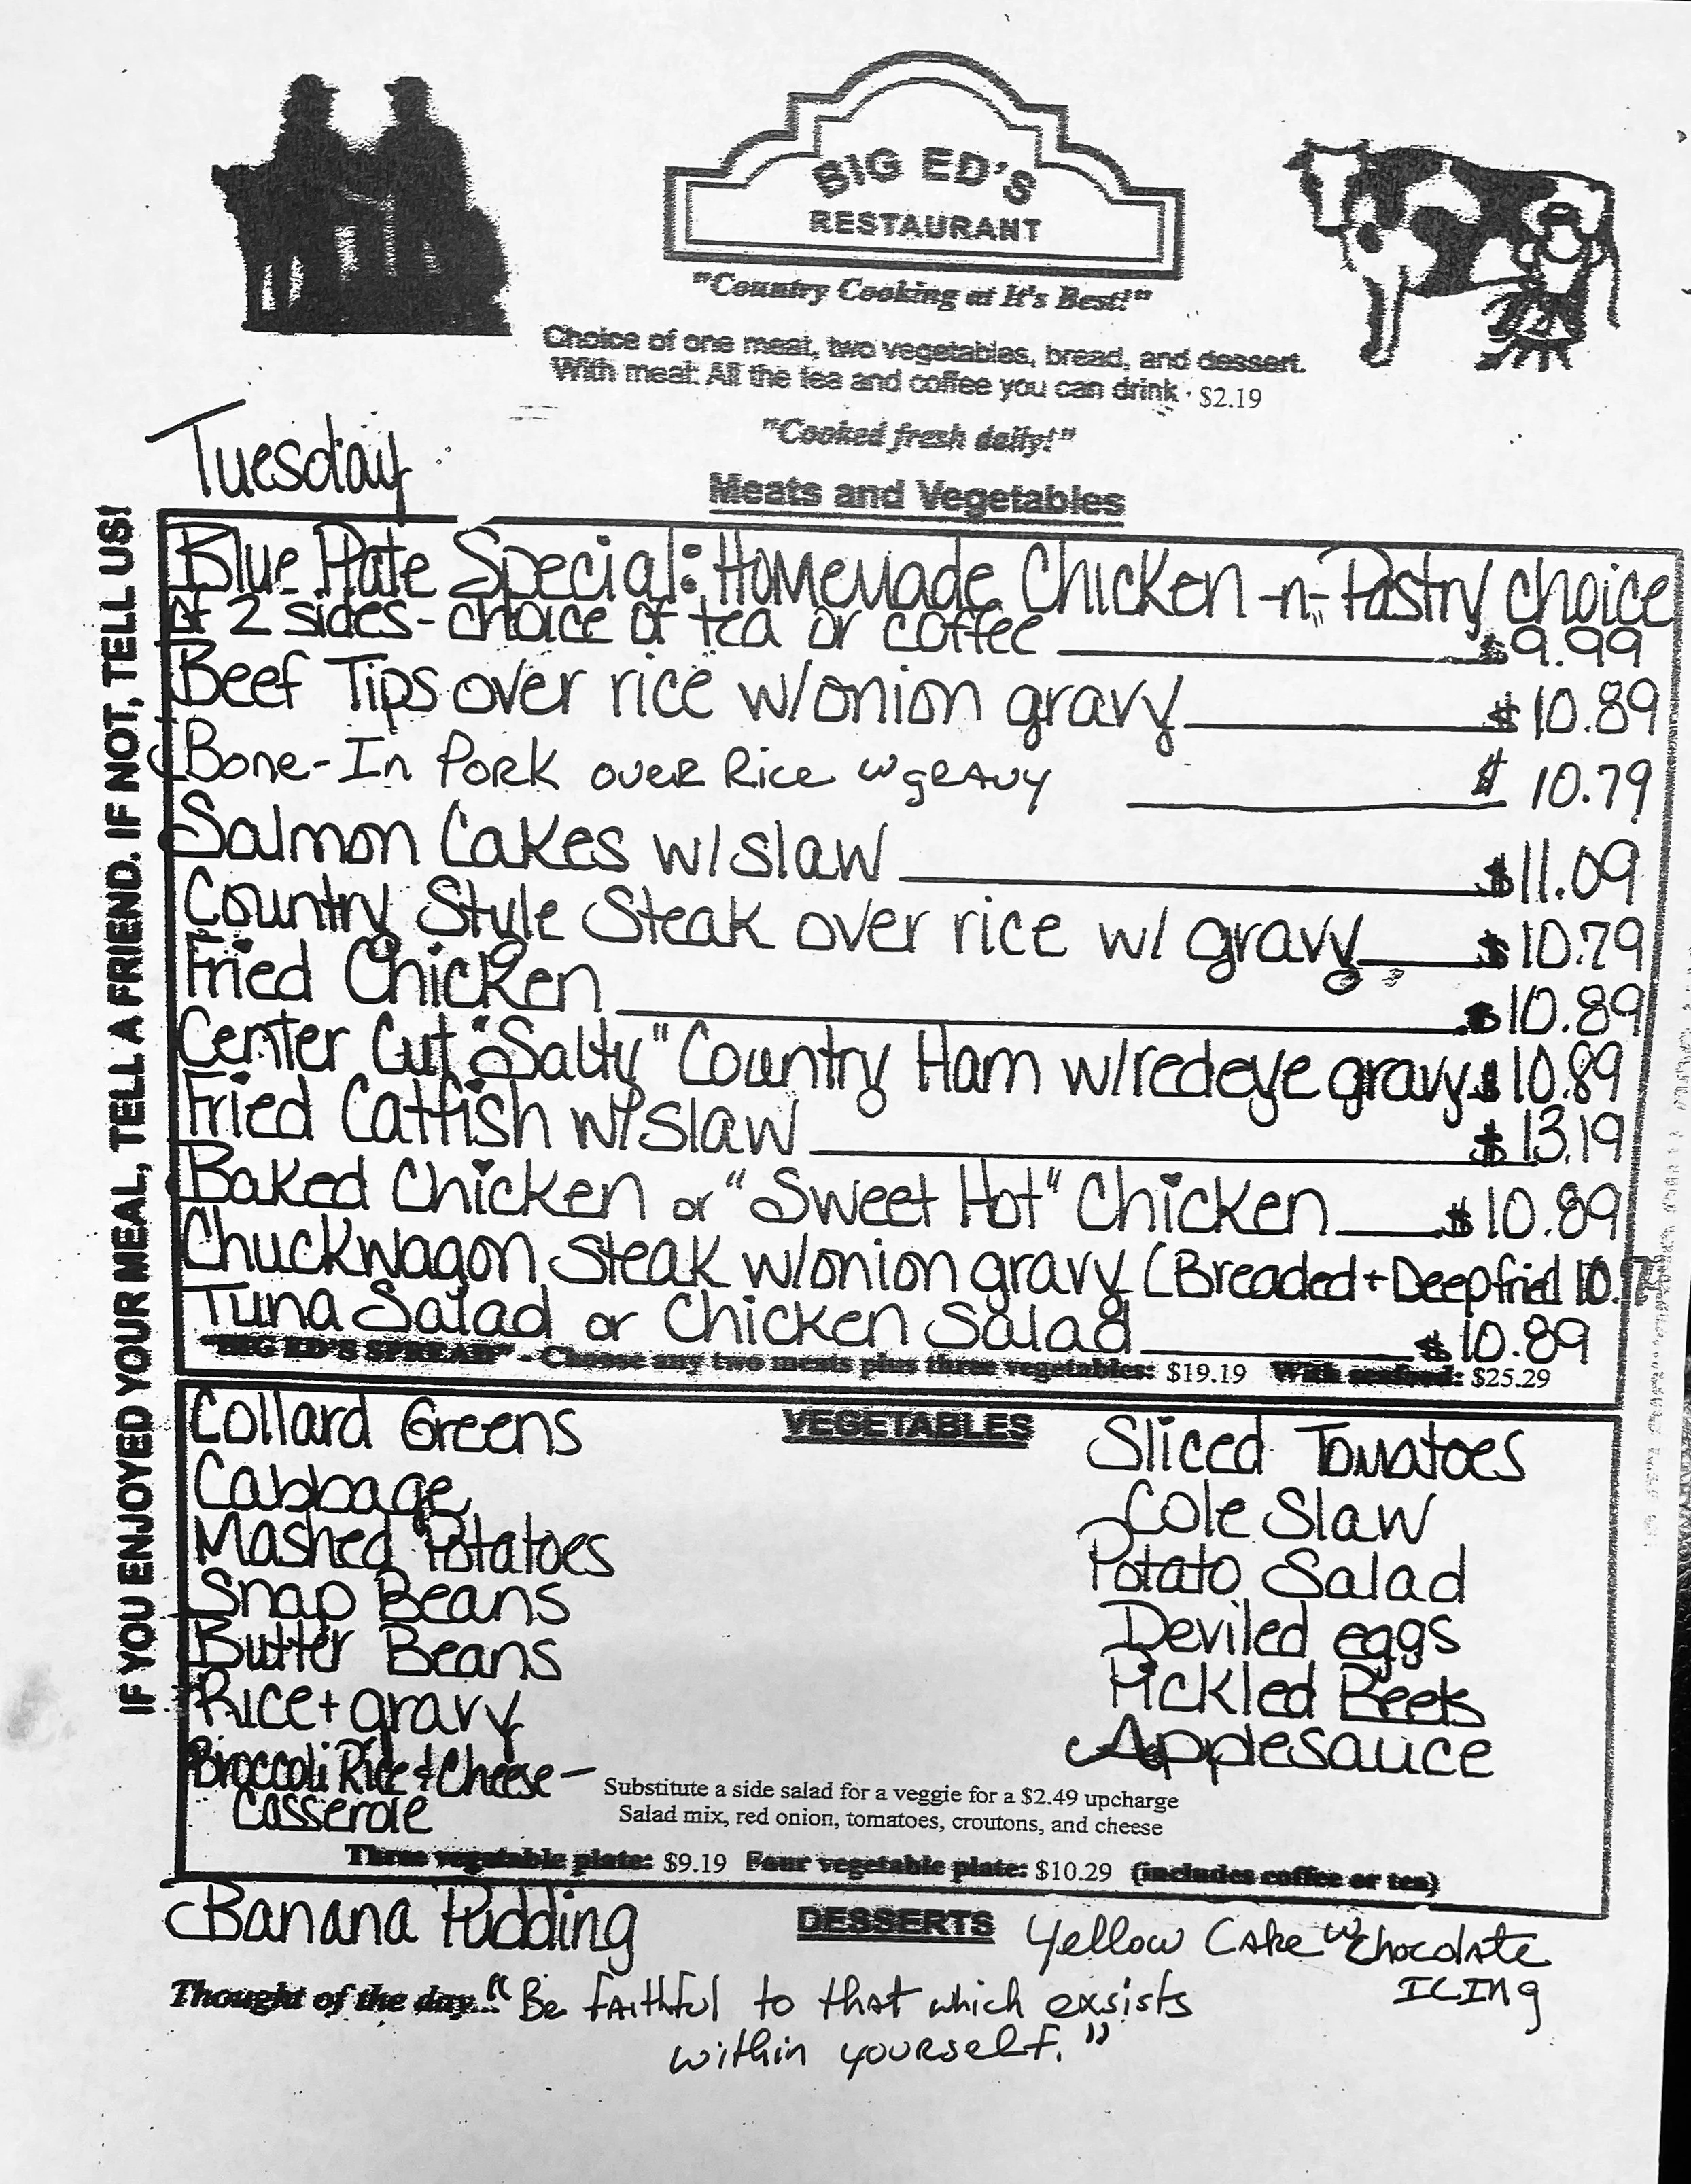 BIG ED'S
RESTAURANT
"Country Cooking at It's Best!"
Choice of one meat, two vegetables, bread, and dessert.
With meat: All the tea and coffee you can drink · $2.19
"Cooked fresh daily!"
Tuesday
Meats and Vegetables
IF YOU ENJOYED YOUR MEAL, TELL A FRIEND. IF NOT, TELL US!
Blue Plate Special: Homemade Chicken -n- Pastry choice
of 2 sides - choice of tea or coffee $9.99
Beef Tips over rice w/onion gravy $10.89
Bone-In Pork over Rice w gravy $10.79
Salmon Cakes w/slaw $11.09
Country Style Steak over rice w/ gravy $10.79
Fried Chicken $10.89
Center Cut "Salty" Country Ham w/redeye gravy $10.89
Fried Catfish w/slaw $13.19
Baked Chicken or "Sweet Hot" Chicken $10.89
Chuckwagon Steak w/onion gravy (Breaded + Deepfried
Tuna Salad or Chicken Salad $10.89
"BIG ED'S SPREAD" - Choose any two meats plus three vegetables: $19.19 With seafood: $25.29
VEGETABLES
Collard Greens
Cabbage
Mashed Potatoes
Snap Beans
Butter Beans
Rice + gravy
Broccoli Rice & Cheese -
Casserole
Sliced Tomatoes
Cole Slaw
Potato Salad
Deviled eggs
Pickled Beets
Applesauce
Substitute a side salad for a veggie for a $2.49 upcharge
Salad mix, red onion, tomatoes, croutons, and cheese
Three vegetable plate: $9.19 Four vegetable plate: $10.29 (includes coffee or tea)
DESSERTS
Banana Pudding
Yellow Cake w Chocolate
Icing
Thought of the day... "Be faithful to that which exsists
within yourself."